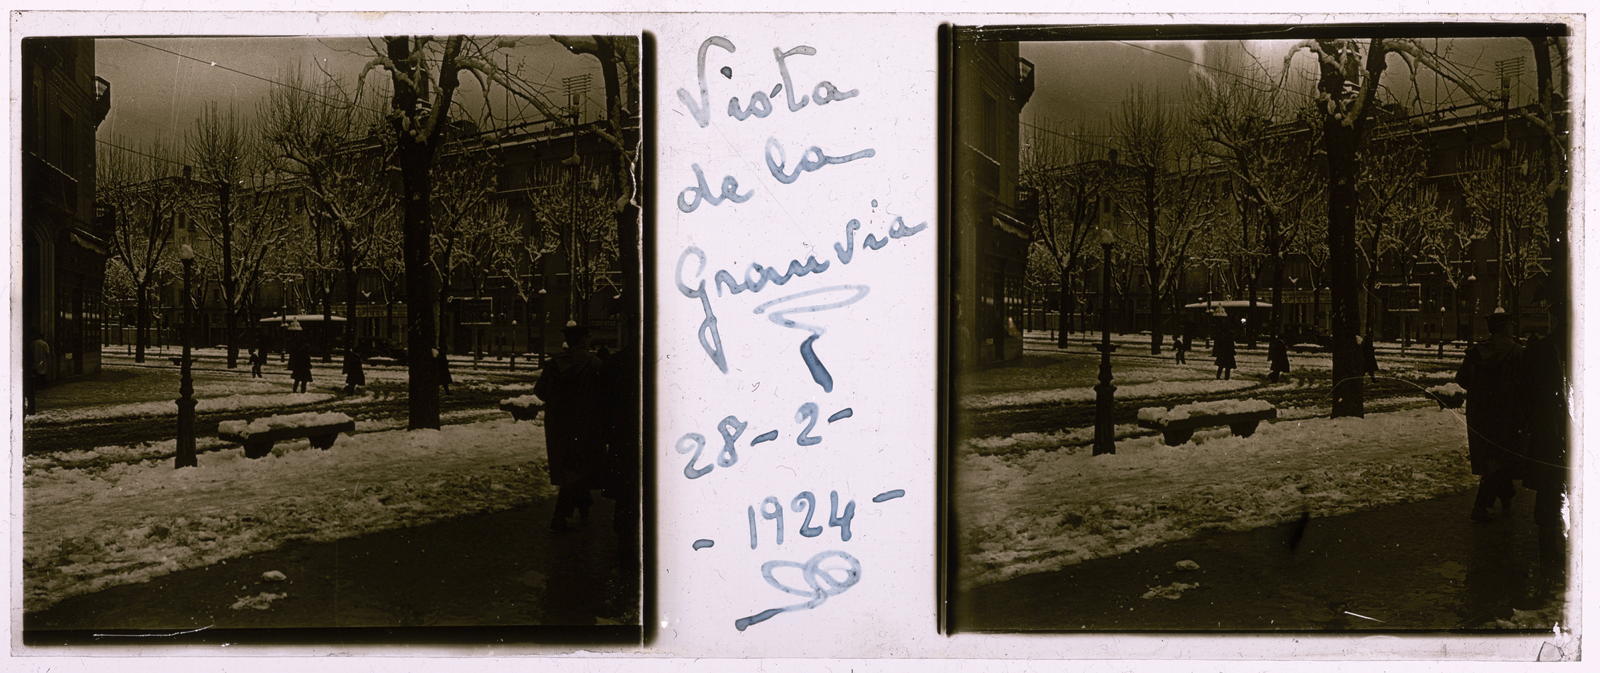 Vista
de la
Granvia
28-2-
-1924-